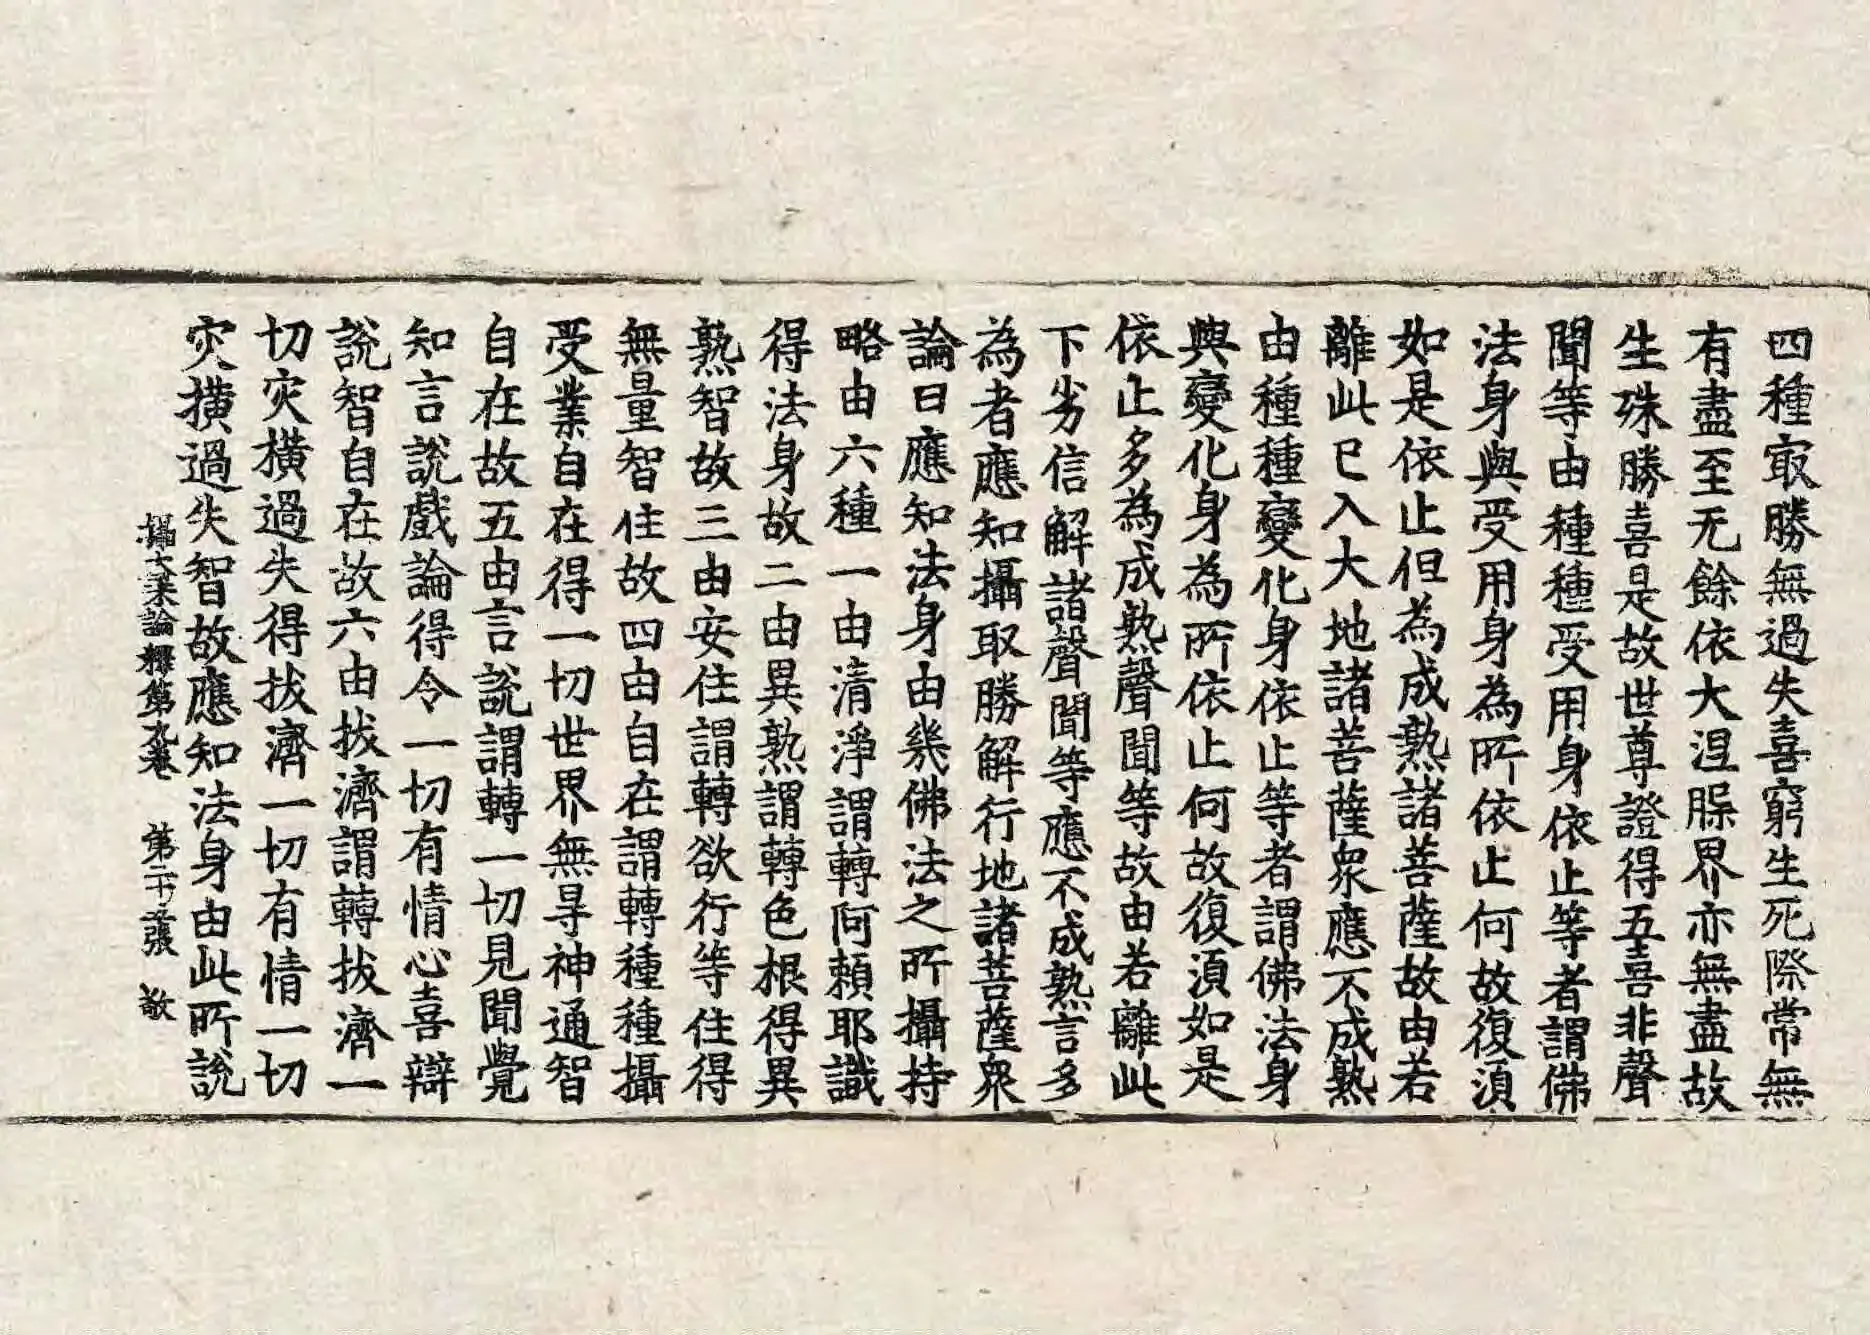 四種㝡勝無過失喜窮生死際常無
有盡至无餘依大涅槃界亦無盡故
生殊勝喜是故世尊證得五喜非聲
聞等由種種受用身依止等者謂佛
法身與受用身為所依止何故復湏
如是依止但為成熟諸菩薩故由若
離此已入大地諸菩薩衆應不成熟
由種種變化身依止等者謂佛法身
與變化身為所依止何故復湏如是
依止多為成熟聲聞等故由若離此
下劣信解諸聲聞等應不成熟言多
為者應知攝取勝解行地諸菩薩衆
論曰應知法身由幾佛法之所攝持
略由六種一由清淨謂轉阿頼耶識
得法身故二由異熟謂轉色根得異
熟智故三由安住謂轉欲行等住得
無量智住故四由自在謂轉種種攝
受業自在得一切世界無㝵神通智
自在故五由言說謂轉一切見聞覺
知言說戲論得令一切有情心喜辯
說智自在故六由拔濟謂轉拔濟一
切灾橫過失得拔濟一切有情一切
灾橫過失智故應知法身由此所說
攝大業論釋第九卷 第二十張 敬